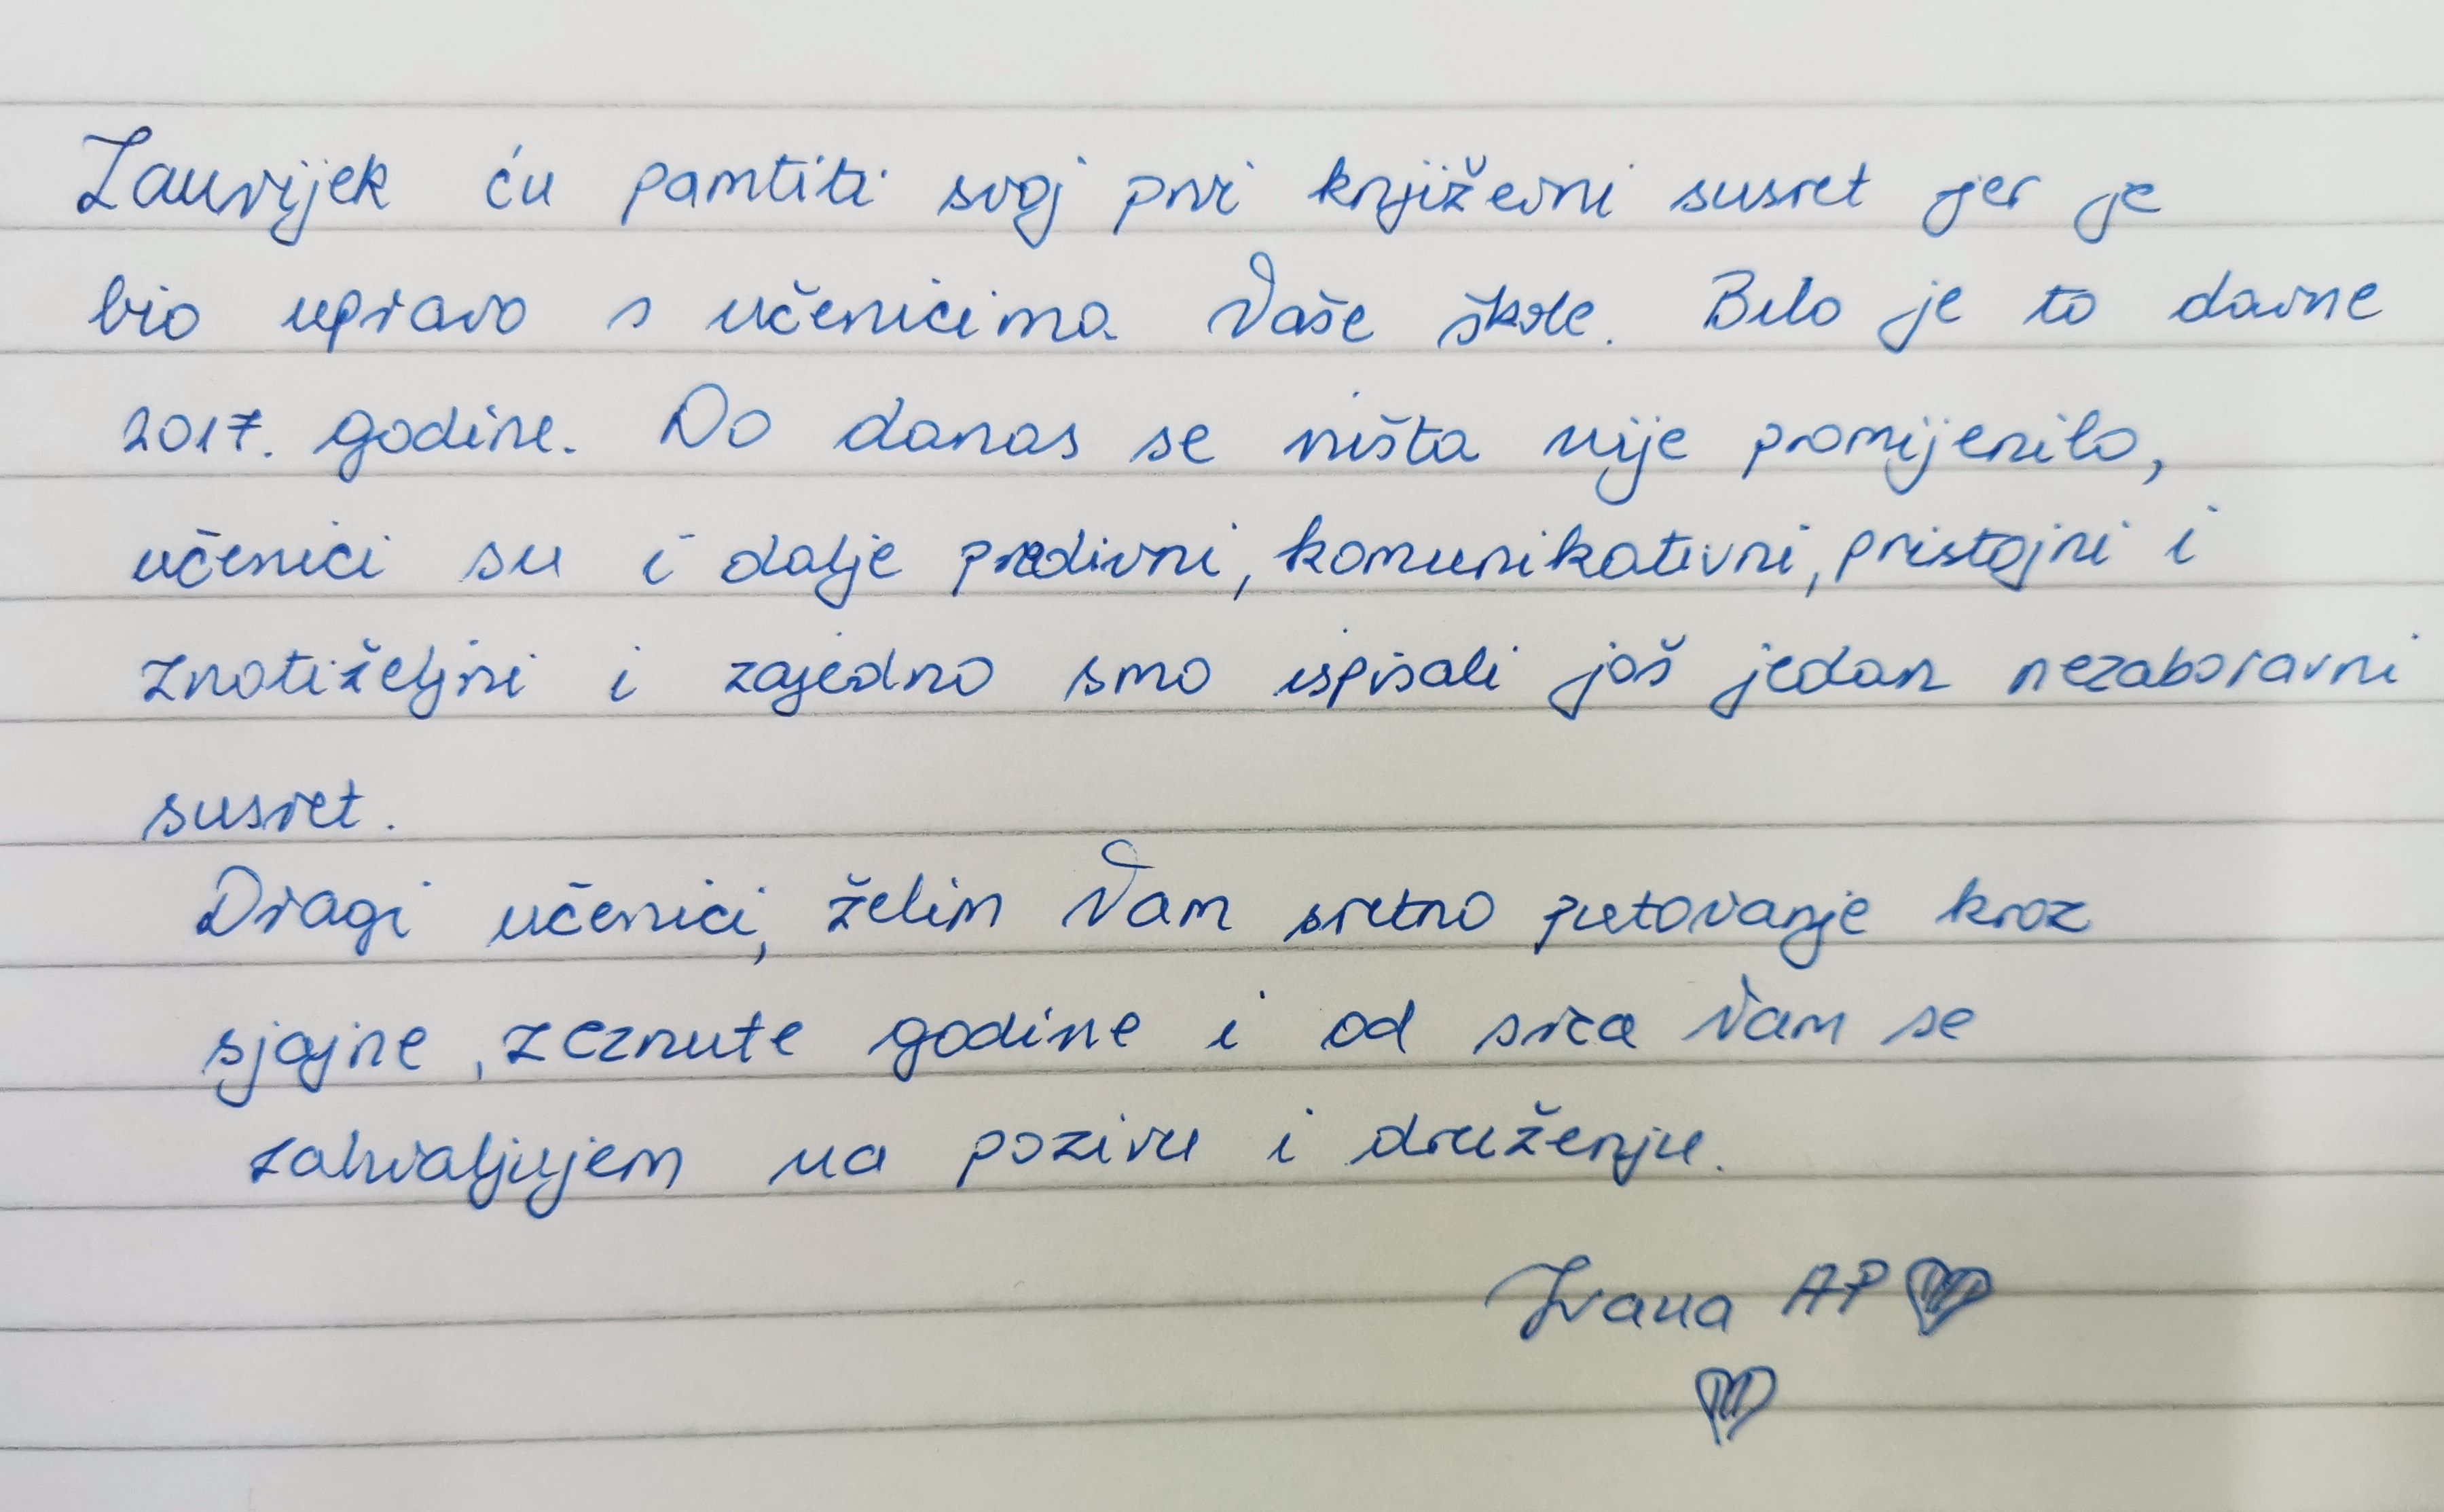 Zauvijek ću pamtiti svoj prvi književni susret jer je
bio upravo s učenicima Vaše škole. Bilo je to davne
2017. godine. Do danas se ništa nije promijenilo,
učenici su i dalje predivni, komunikativni, pristojni i
znatiželjni i zajedno smo ispisali još jedan nezaboravni
susret.
Dragi učenici, želim Vam sretno putovanje kroz
sjajne, zeznute godine i od srca Vam se
zahvaljujem na pozivu i druženju.
Ivana AP ♥
♥